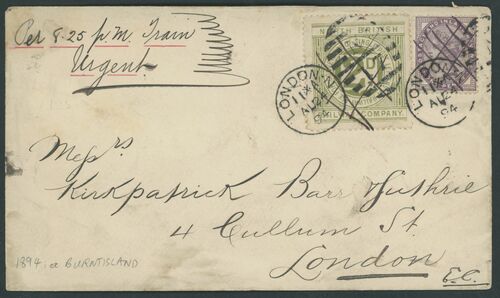 Per 8.25 p.m. Train
Urgent
NORTH BRITISH
RAILWAY COMPANY.
LONDON·N
11
AU 24
94
LONDON
11
AU 24
94
Messrs
Kirkpatrick Barr Guthrie
4 Cullum St.
London
E.C.
1894; a BURNTISLAND